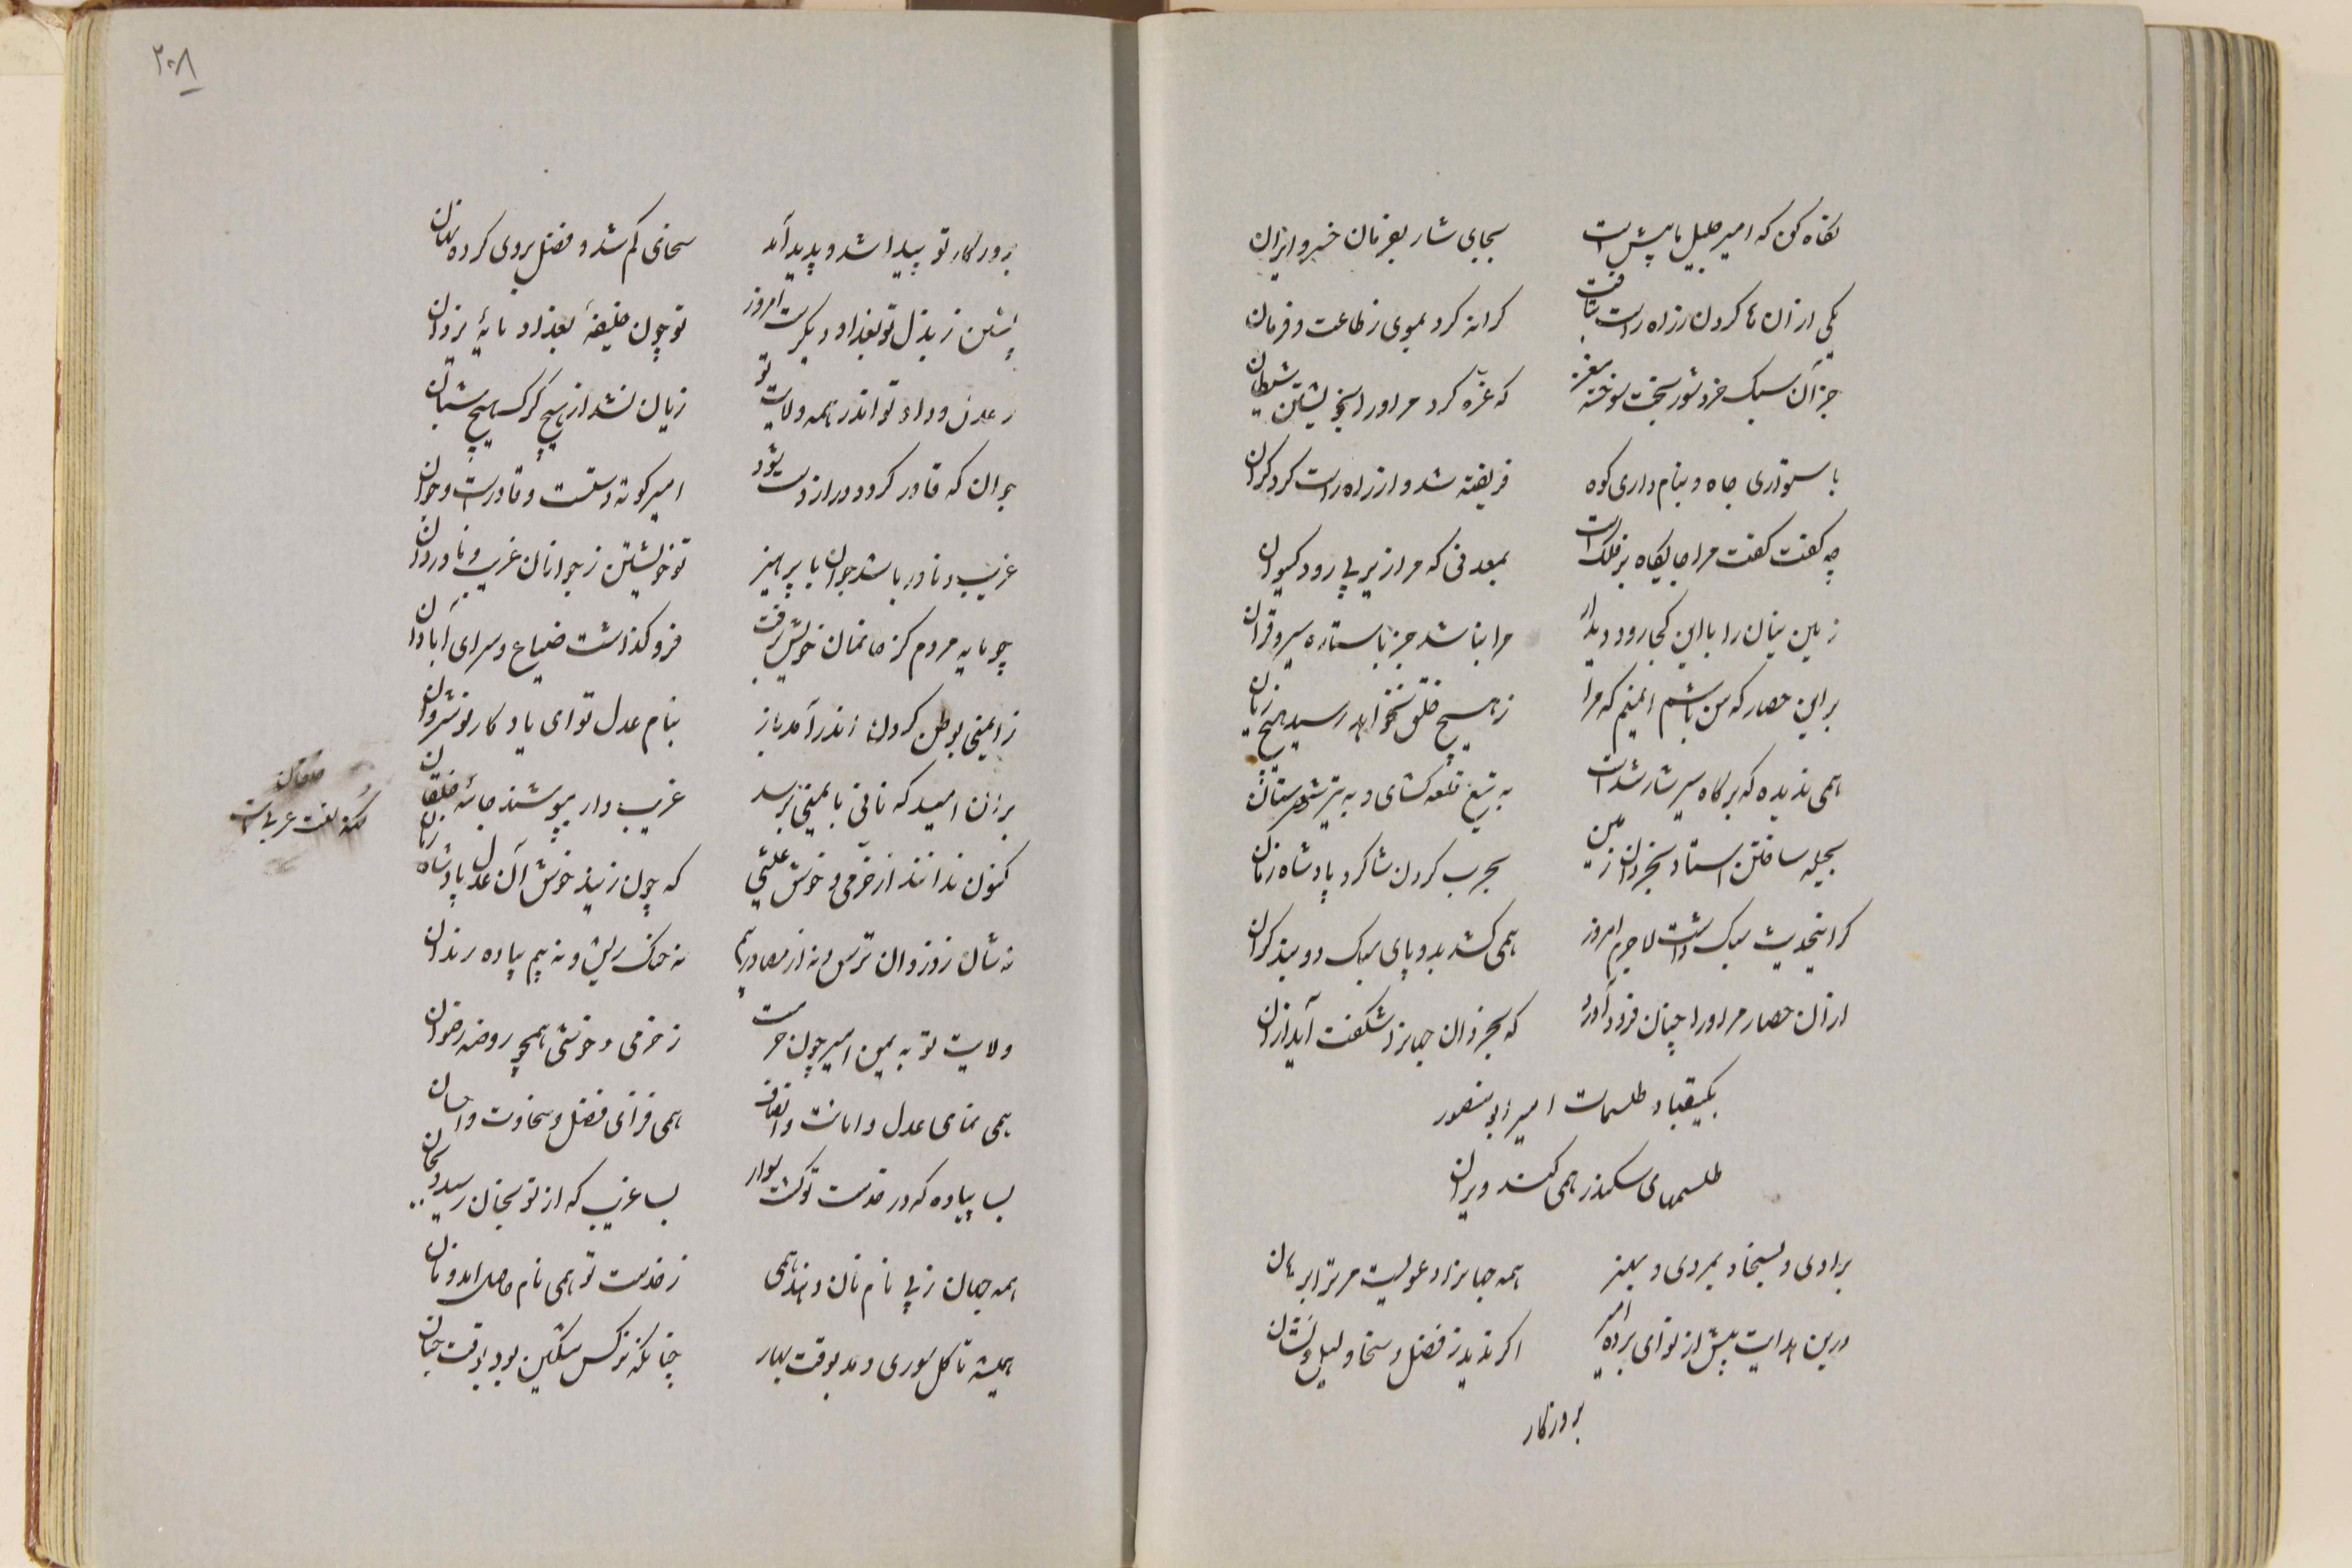 نگاه کن که امیر جلیل تا پیش است بجای شار بفرمان خسرو ایران
یکی از آن ها کردن ز راه راست بتافت کرانه کرد بموی ز طاعت و فرمان
جز آن سبک خرد شور بخت سوخته مغز که غره کرد مر او را بخویشتن شیطان
باستواری جاه و بنام داری کوه فریفته شد و از راه راست کرد کران
چه گفت گفت مرا جایگاه بر فلک است بمعدنی که مرا زیر پی رود کیوان
زمین بنان را با این کجا رود دیدار مرا نباشد جز با ستاره سیر و قران
بر این حصار که من باشم ایمنم که مرا ز هیچ خلق نخواهد رسید هیچ زیان
همی ندیده که بر گاه سیر شار شد است به تیغ قلعه گشای و به تیر شهرستان
بحیله ساختن استاد بخردان زمین بحرب کردن شاگرد پادشاه زمان
کرا نحدیث سبک داشت لاجرم امروز همی کشد بدو پای سبک دو بند گران
از آن حصار مر او را چنان فرود آورد که بخردان جهانرا شگفت آید از آن
بکیقباد طلسمات امیر ابومنصور
طلسمهای سکندر همی کند ویران
برادی و بسخا و بمردی و بهنر همه جهانرا دعویست مر ترا برهان
درین هدایت پیش از تو ای براده امیر اگر ندید ز فضل و سخا و لیل و نشان
بروزگار
۲۰۸
بروزگار تو پیدا شد و پدید آمد سخای گم شد و فضل بروی کرده نهان
پشتن ز بذل تو بغداد دیگرست امروز تو چون خلیفهٔ بغداد مایهٔ یزدان
ز عدل و داد تو اندر همه ولایت تو زیان نشد از هیچ گرگ بهیچ شبان
جوان که قادر گردد دراز دست شود امیر کوته دستست و قادرست و جوان
غریب و نادر باشد جوان با پرهیز تو خویشتن ز جوانان غریب و نادر دان
چو مایه مردم کز خانمان خویش برفت فرو گذاشت ضیاع و سرای آبادان
ز ایمنی بوطن کردن اندر آمد باز بنام عدل تو ای یادگار نوشروان
بر آن امید که نانی بایمنی برسد غریب وار بپوشند جامهٔ خلقان
کنون ندانند از خرمی و خوش عیشی که چون زیند خوش آن عدل پادشاه زمان
نه شان ز دزدان ترس و نه از مصادره بیم نه خنک ریش و نه بیم پیاده رندان
ولایت تو به یمن امیر چون حرمست ز خرمی و خوشی همچو روضه رضوان
همی نمای عدل و امانت و انصاف همی فزای فضل و سخاوت و احسان
بسا پیاده که در خدمت تو گشت سوار بسا غریب که از تو بخان رسید و بمان
همه جهان ز پی نام نان دهند همی ز خدمت تو همی نام حاصل آمد و نان
همیشه تا گل سوری دمد بوقت بهار چنانکه نرگس مشکین بود بوقت خزان
خلقان
لغت عربی است